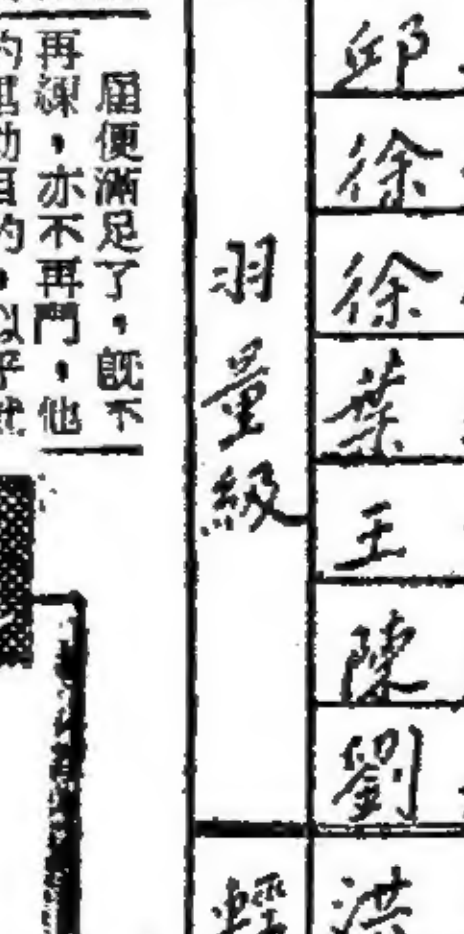 屆便滿足了，既不
再練，亦不再鬥，他
羽量級
邱
徐
徐
葉
王
陳
劉
洪
輕